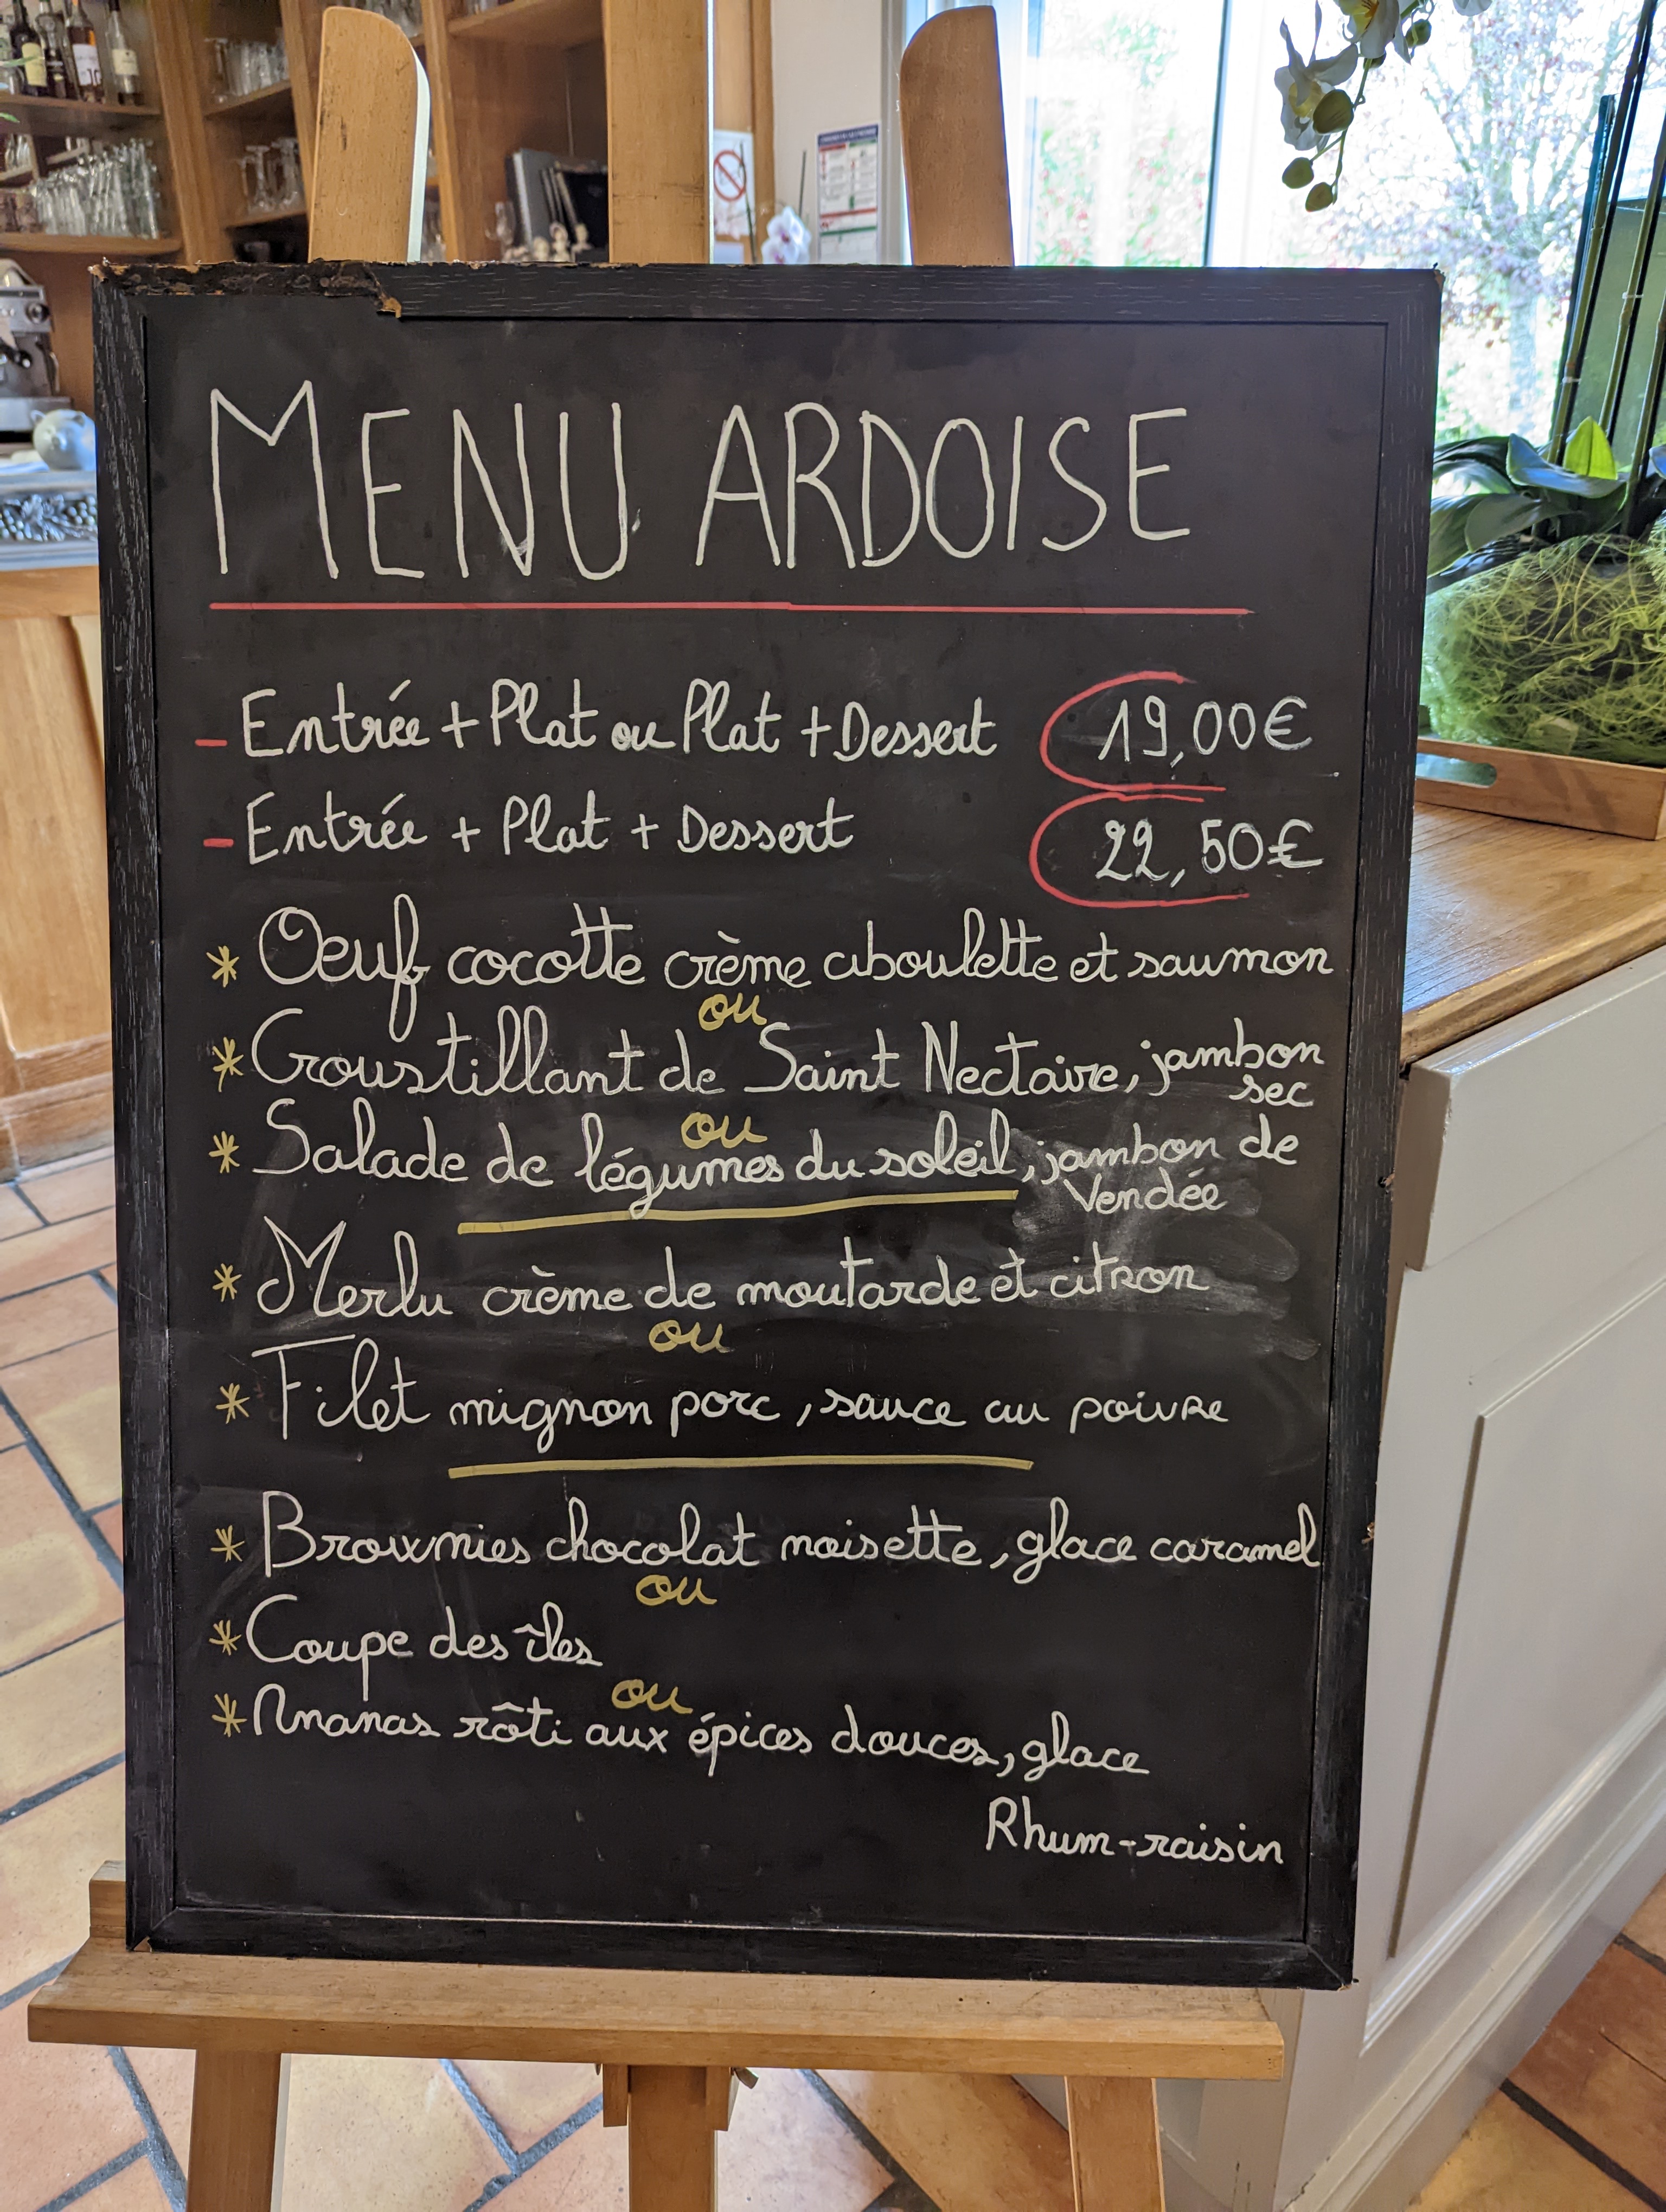 MENU ARDOISE
- Entrée + Plat ou Plat + Dessert 19,00€
- Entrée + Plat + Dessert 22,50€
* Oeuf cocotte crème ciboulette et saumon
ou
* Croustillant de Saint Nectaire, jambon
sec
ou
* Salade de légumes du soleil, jambon de
Vendée
* Merlu crème de moutarde et citron
ou
* Filet mignon porc, sauce au poivre
* Brownies chocolat noisette, glace caramel
ou
* Coupe des îles
ou
* Ananas rôti aux épices douces, glace
Rhum-raisin